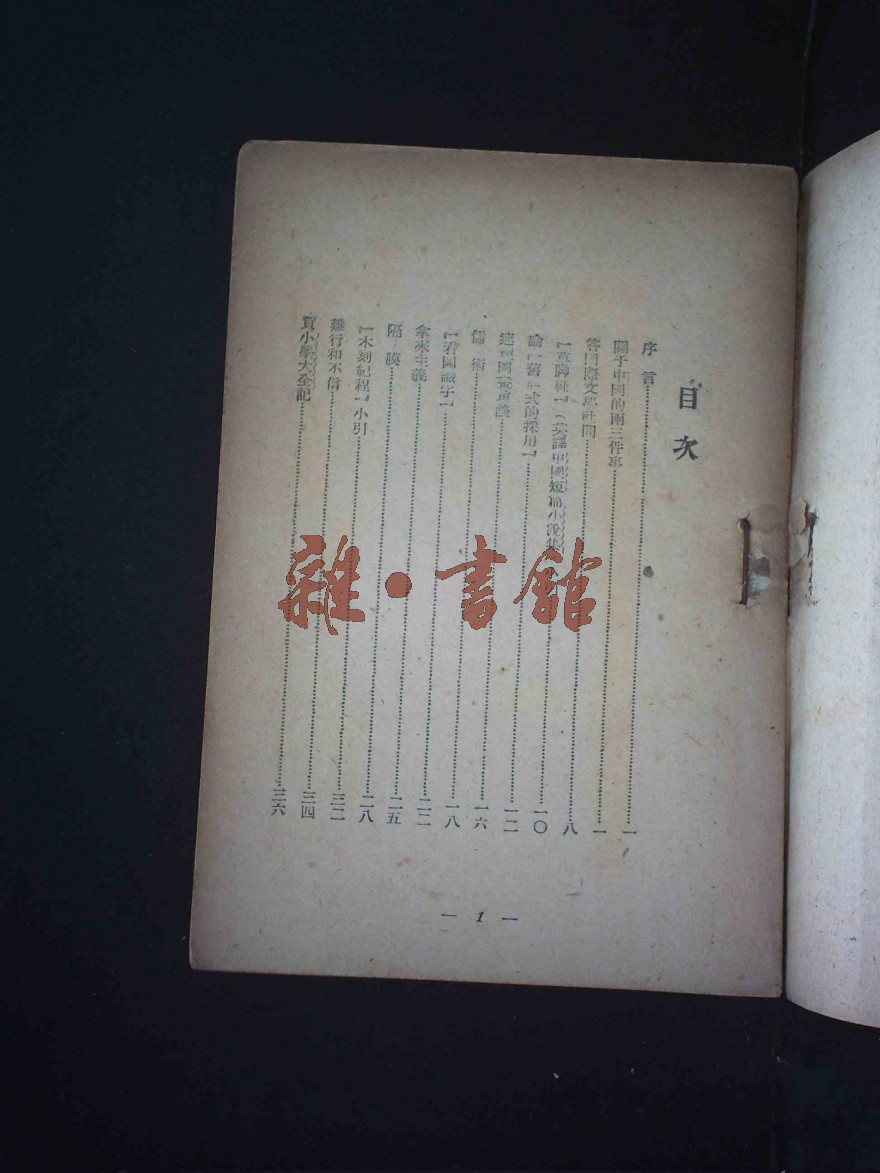 目次
序言……一
關于中國的兩三件事……一
答國際文學社問……八
【草脚鞋】（英譯中國短篇小說集……一〇
論【舊形式的採用】……一二
連環圖畫瑣談……一六
儒術……一八
【看圖識子】……二二
拿來主義……二五
隔膜……二八
【木刻紀程】小引……三二
難行和不信……三四
買小學大全記……三六
— 1 —
雜·書館